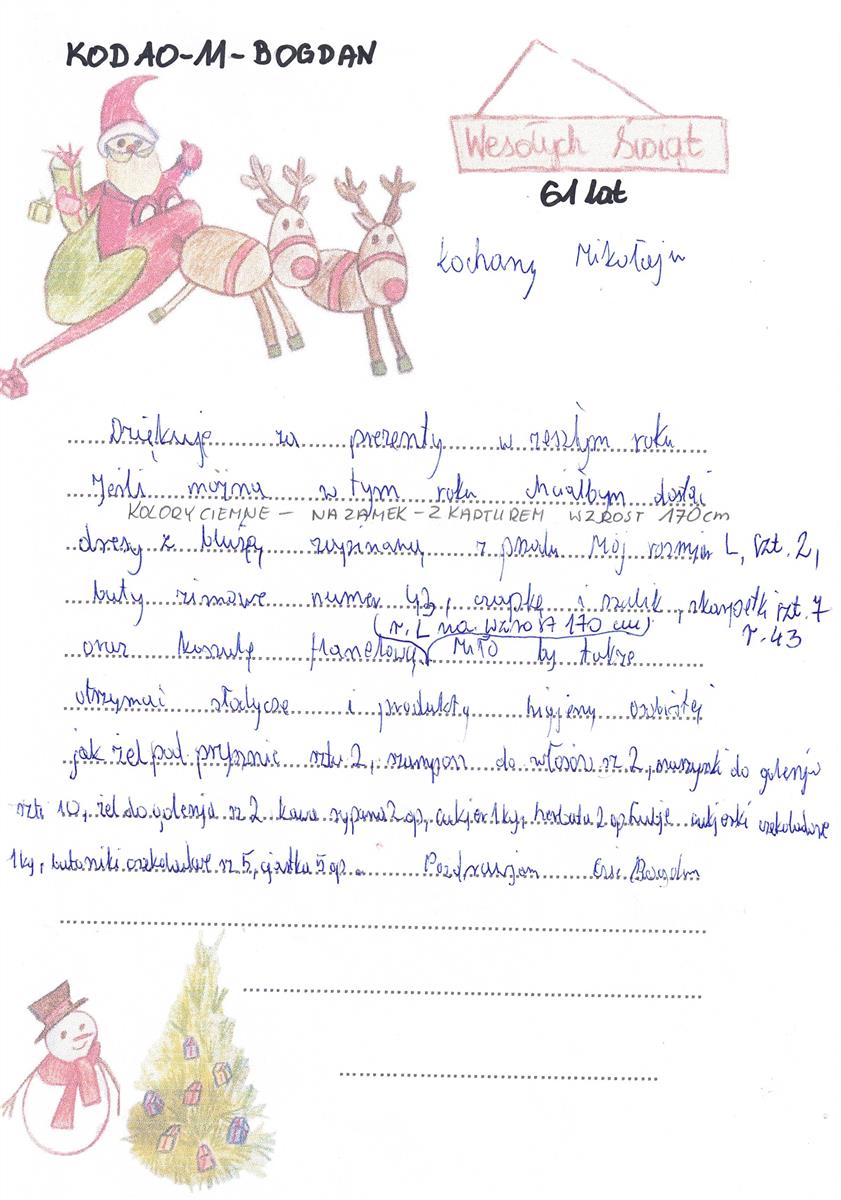 KODAO-11-BOGDAN
Wesołych Świąt
61 lat
Kochany Mikołaju
Dziękuję za prezenty w zeszłym roku
Jeśli można w tym roku chciałbym dostać
KOLORY CIEMNE - NA ZAMEK - Z KAPTUREM WZROST 170 cm
dresy z bluzą zapinaną z przodu Mój rozmiar L, szt. 2,
buty zimowe numer 43, czapkę i szalik, skarpetki szt. 7
r. 43
(r. L na wzrost 170 cm)
oraz koszulę flanelową. Miło by także
otrzymać słodycze i produkty higieny osobistej
jak żel pod prysznic sztu 2, szampon do włosów sz 2, maszynki do golenia
szt. 10, żel do golenia sz 2 kawa sypana 2 op, cukier 1 kg, herbata 2 op cukierki czekoladowe
1 kg, batoniki czekoladowe sz 5, ciastka 5 op. Pozdrawiam Bogdan